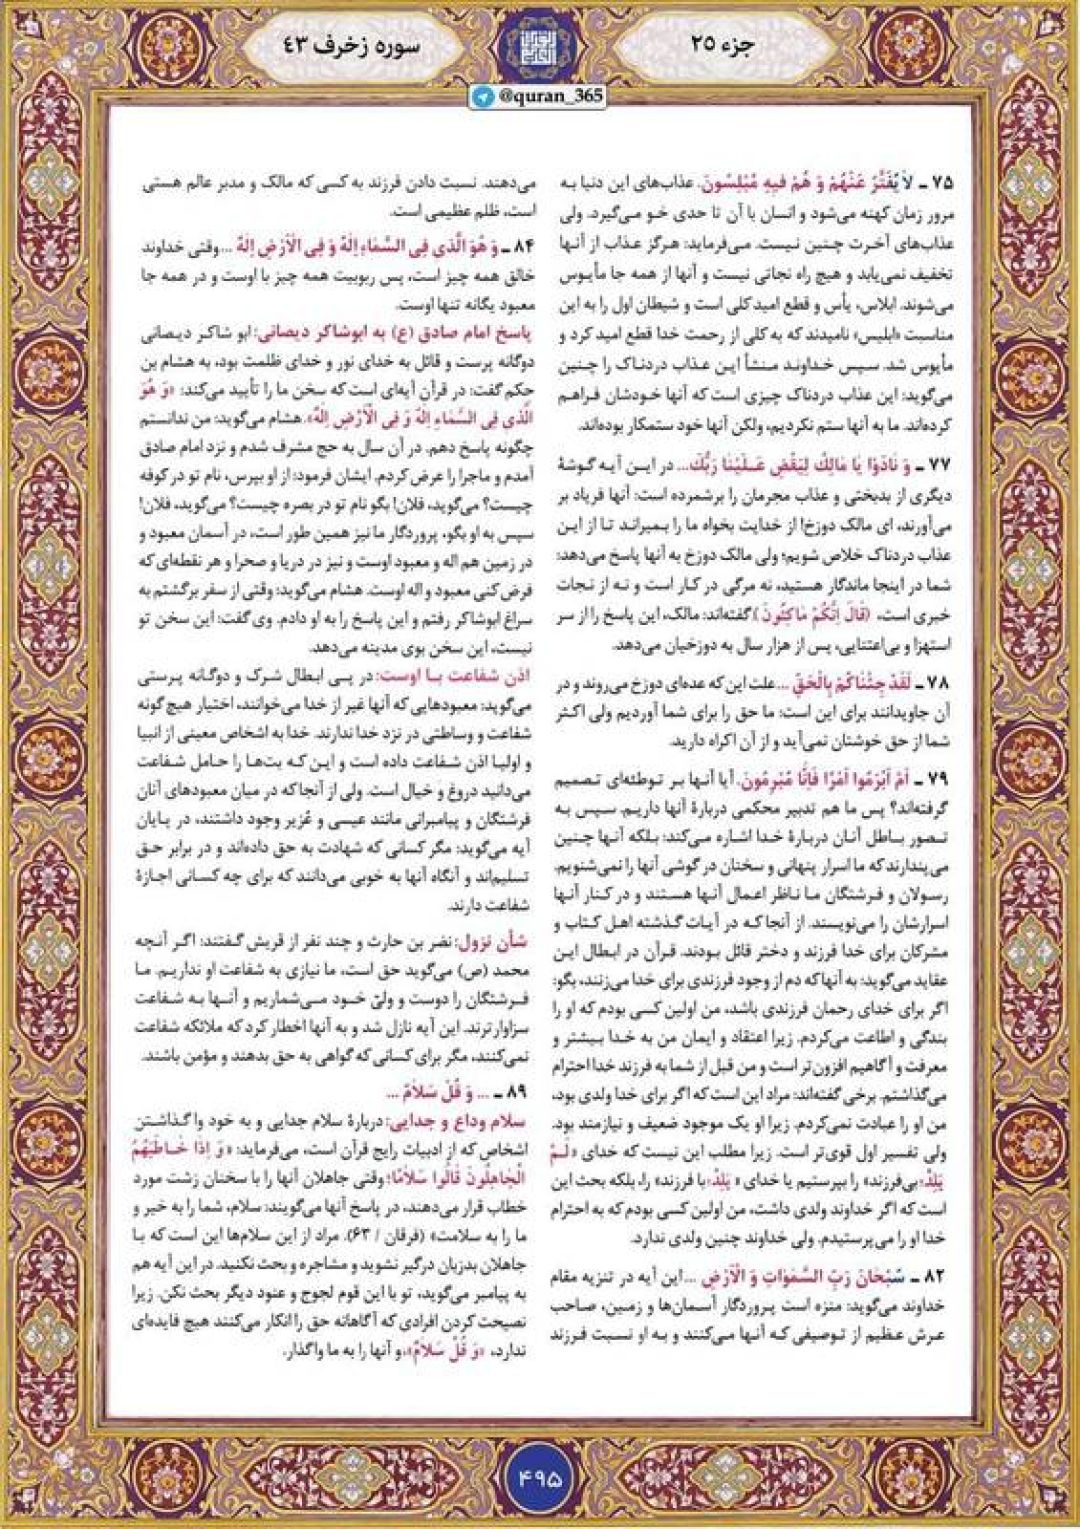 جزء ۲۵
سوره زخرف ۴۳
@quran_365
۷۵ ـ لاَ يُفَتَّرُ عَنْهُمْ وَ هُمْ فيهِ مُبْلِسُونَ. عذاب‌های این دنیا به
مرور زمان کهنه می‌شود و انسان با آن تا حدی خو می‌گیرد. ولی
عذاب‌های آخرت چنین نیست. می‌فرماید: هرگز عذاب از آنها
تخفیف نمی‌یابد و هیچ راه نجاتی نیست و آنها از همه جا مأیوس
می‌شوند. ابلاس، یأس و قطع امید کلی است و شیطان اول را به این
مناسبت «ابلیس» نامیدند که به کلی از رحمت خدا قطع امید کرد و
مأیوس شد. سپس خداوند منشأ این عذاب دردناک را چنین
می‌گوید: این عذاب دردناک چیزی است که آنها خودشان فراهم
کرده‌اند. ما به آنها ستم نکردیم، ولکن آنها خود ستمکار بوده‌اند.
۷۷ ـ وَ نَادَوْا يَا مَالِكُ لِيَقْضِ عَلَيْنَا رَبُّكَ... در این آیه گوشهٔ
دیگری از بدبختی و عذاب مجرمان را برشمرده است: آنها فریاد بر
می‌آورند، ای مالک دوزخ! از خدایت بخواه ما را بمیراند تا از این
عذاب دردناک خلاص شویم؛ ولی مالک دوزخ به آنها پاسخ می‌دهد:
شما در اینجا ماندگار هستید، نه مرگی در کار است و نه از نجات
خبری است. (قَالَ اِنَّكُمْ مَاكِثُونَ) گفته‌اند: مالک، این پاسخ را از سر
استهزا و بی‌اعتنایی، پس از هزار سال به دوزخیان می‌دهد.
۷۸ ـ لَقَدْ جِئْنَاكُمْ بِالْحَقِّ ... علت این که عده‌ای دوزخ می‌روند و در
آن جاویدانند برای این است: ما حق را برای شما آوردیم ولی اکثر
شما از حق خوشتان نمی‌آید و از آن اکراه دارید.
۷۹ ـ اَمْ اَبْرَمُوا اَمْرًا فَاِنَّا مُبْرِمُونَ. آیا آنها بر توطئه‌ای تصمیم
گرفته‌اند؟ پس ما هم تدبیر محکمی دربارهٔ آنها داریم. سپس به
تصور باطل آنان دربارهٔ خدا اشاره می‌کند: بلکه آنها چنین
می‌پندارند که ما اسرار پنهانی و سخنان در گوشی آنها را نمی‌شنویم.
رسولان و فرشتگان ما ناظر اعمال آنها هستند و در کنار آنها
اسرارشان را می‌نویسند. از آنجا که در آیات گذشته اهل کتاب و
مشرکان برای خدا فرزند و دختر قائل بودند. قرآن در ابطال این
عقاید می‌گوید: به آنها که دم از وجود فرزندی برای خدا می‌زنند، بگو:
اگر برای خدای رحمان فرزندی باشد، من اولین کسی بودم که او را
بندگی و اطاعت می‌کردم. زیرا اعتقاد و ایمان من به خدا بیشتر و
معرفت و آگاهیم افزون‌تر است و من قبل از شما به فرزند خدا احترام
می‌گذاشتم. برخی گفته‌اند: مراد این است که اگر برای خدا ولدی بود،
من او را عبادت نمی‌کردم. زیرا او یک موجود ضعیف و نیازمند بود.
ولی تفسیر اول قوی‌تر است. زیرا مطلب این نیست که خدای «لَمْ
يَلِدْ؛ بی‌فرزند» را بپرستیم یا خدای «يَلِدْ؛ با فرزند» را، بلکه بحث این
است که اگر خداوند ولدی داشت، من اولین کسی بودم که به احترام
خدا او را می‌پرستیدم. ولی خداوند چنین ولدی ندارد.
۸۲ ـ سُبْحَانَ رَبِّ السَّمٰوَاتِ وَ الْاَرْضِ ... این آیه در تنزیه مقام
خداوند می‌گوید: منزه است پروردگار آسمان‌ها و زمین، صاحب
عرش عظیم از توصیفی که آنها می‌کنند و به او نسبت فرزند
می‌دهند. نسبت دادن فرزند به کسی که مالک و مدبر عالم هستی
است، ظلم عظیمی است.
۸۴ ـ وَ هُوَ الَّذى فِى السَّمَاءِ اِلٰهٌ وَ فِى الْاَرْضِ اِلٰهٌ ... وقتی خداوند
خالق همه چیز است، پس ربوبیت همه چیز با اوست و در همه جا
معبود یگانه تنها اوست.
پاسخ امام صادق (ع) به ابوشاکر دیصانی: ابو شاکر دیصانی
دوگانه پرست و قائل به خدای نور و خدای ظلمت بود، به هشام بن
حکم گفت: در قرآن آیه‌ای است که سخن ما را تأیید می‌کند: «وَ هُوَ
الَّذى فِى السَّمَاءِ اِلٰهٌ وَ فِى الْاَرْضِ اِلٰهٌ». هشام می‌گوید: من ندانستم
چگونه پاسخ دهم. در آن سال به حج مشرف شدم و نزد امام صادق
آمدم و ماجرا را عرض کردم. ایشان فرمود: از او بپرس، نام تو در کوفه
چیست؟ می‌گوید، فلان! بگو نام تو در بصره چیست؟ می‌گوید، فلان!
سپس به او بگو، پروردگار ما نیز همین طور است، در آسمان معبود و
در زمین هم اله و معبود اوست و نیز در دریا و صحرا و هر نقطه‌ای که
فرض کنی معبود و اله اوست. هشام می‌گوید: وقتی از سفر برگشتم به
سراغ ابوشاکر رفتم و این پاسخ را به او دادم. وی گفت: این سخن تو
نیست، این سخن بوی مدینه می‌دهد.
اذن شفاعت با اوست: در پی ابطال شرک و دوگانه پرستی
می‌گوید: معبودهایی که آنها غیر از خدا می‌خوانند، اختیار هیچ گونه
شفاعت و وساطتی در نزد خدا ندارند. خدا به اشخاص معینی از انبیا
و اولیا اذن شفاعت داده است و این که بت‌ها را حامل شفاعت
می‌دانید دروغ و خیال است. ولی از آنجا که در میان معبودهای آنان
فرشتگان و پیامبرانی مانند عیسی و عُزیر وجود داشتند، در پایان
آیه می‌گوید: مگر کسانی که شهادت به حق داده‌اند و در برابر حق
تسلیم‌اند و آنگاه آنها به خوبی می‌دانند که برای چه کسانی اجازهٔ
شفاعت دارند.
شأن نزول: نضر بن حارث و چند نفر از قریش گفتند: اگر آنچه
محمد (ص) می‌گوید حق است، ما نیازی به شفاعت او نداریم. ما
فرشتگان را دوست و ولیّ خود می‌شماریم و آنها به شفاعت
سزاوارترند. این آیه نازل شد و به آنها اخطار کرد که ملائکه شفاعت
نمی‌کنند، مگر برای کسانی که گواهی به حق بدهند و مؤمن باشند.
۸۹ ـ ... وَ قُلْ سَلاَمٌ ...
سلام وداع و جدایی: دربارهٔ سلام جدایی و به خود واگذاشتن
اشخاص که از ادبیات رایج قرآن است، می‌فرماید: «وَ اِذَا خَاطَبَهُمُ
الْجَاهِلُونَ قَالُوا سَلاَمًا؛ وقتی جاهلان آنها را با سخنان زشت مورد
خطاب قرار می‌دهند، در پاسخ آنها می‌گویند: سلام، شما را به خیر و
ما را به سلامت» (فرقان / ۶۳). مراد از این سلام‌ها این است که با
جاهلان بدزبان درگیر نشوید و مشاجره و بحث نکنید. در این آیه هم
به پیامبر می‌گوید، تو با این قوم لجوج و عنود دیگر بحث نکن. زیرا
نصیحت کردن افرادی که آگاهانه حق را انکار می‌کنند هیچ فایده‌ای
ندارد، «وَ قُلْ سَلاَمٌ» و آنها را به ما واگذار.
۴۹۵